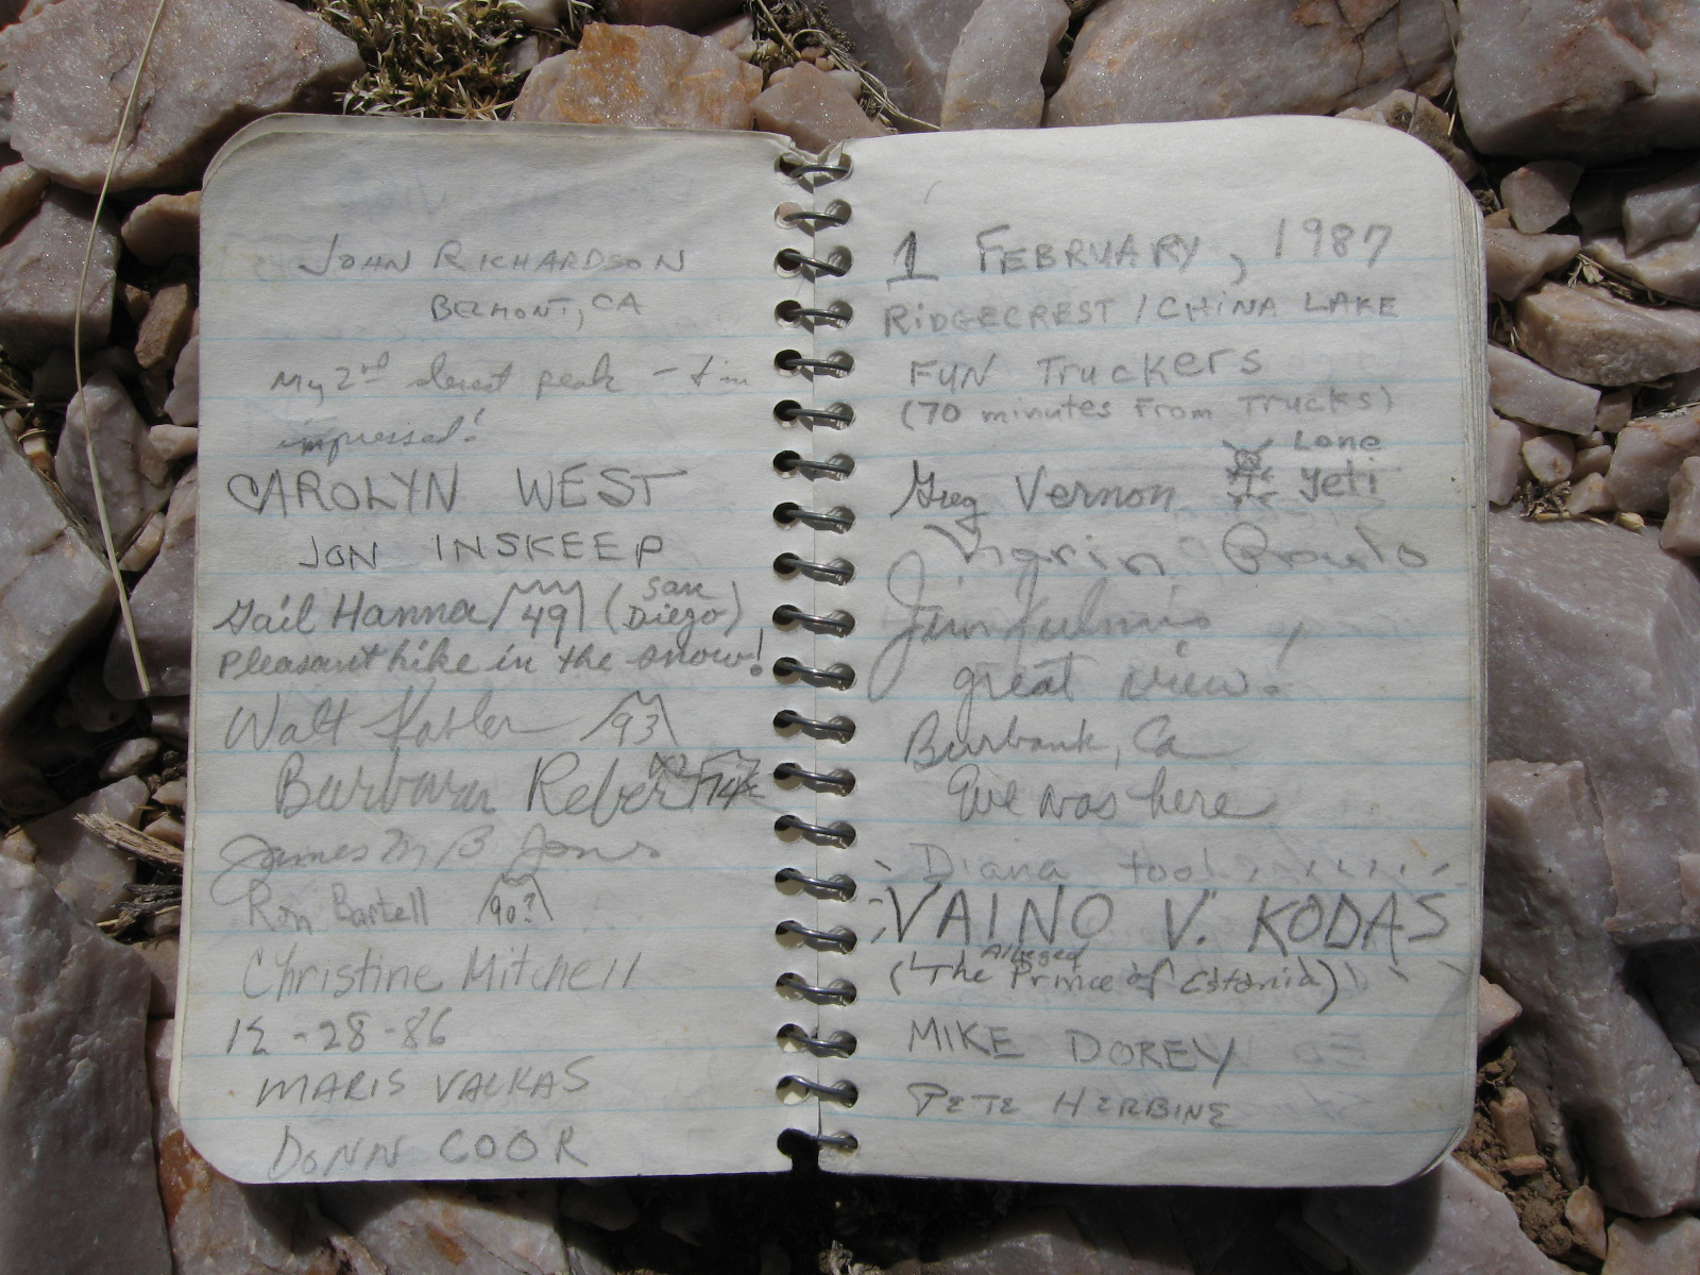 JOHN RICHARDSON
BELMONT, CA
My 2nd desert peak - I'm
impressed!
CAROLYN WEST
JON INSKEEP
Gail Hanna 49 (San Diego)
Pleasant hike in the snow!
Walt 93
Barbara Reber
James M B Jones
Ron Bartell 90?
Christine Mitchell
12-28-86
MARIS VALKAS
DONN COOR
1 FEBRUARY, 1987
RIDGECREST / CHINA LAKE
FUN TRUCKERS
(70 minutes From Trucks)
Greg Vernon Lone Yeti
Jim
great view!
Burbank, Ca
Eve was here
Diana too!
VAINO V. KODAS
(The Alleged Prince of Estonia)
MIKE DOREY
PETE HERBINE